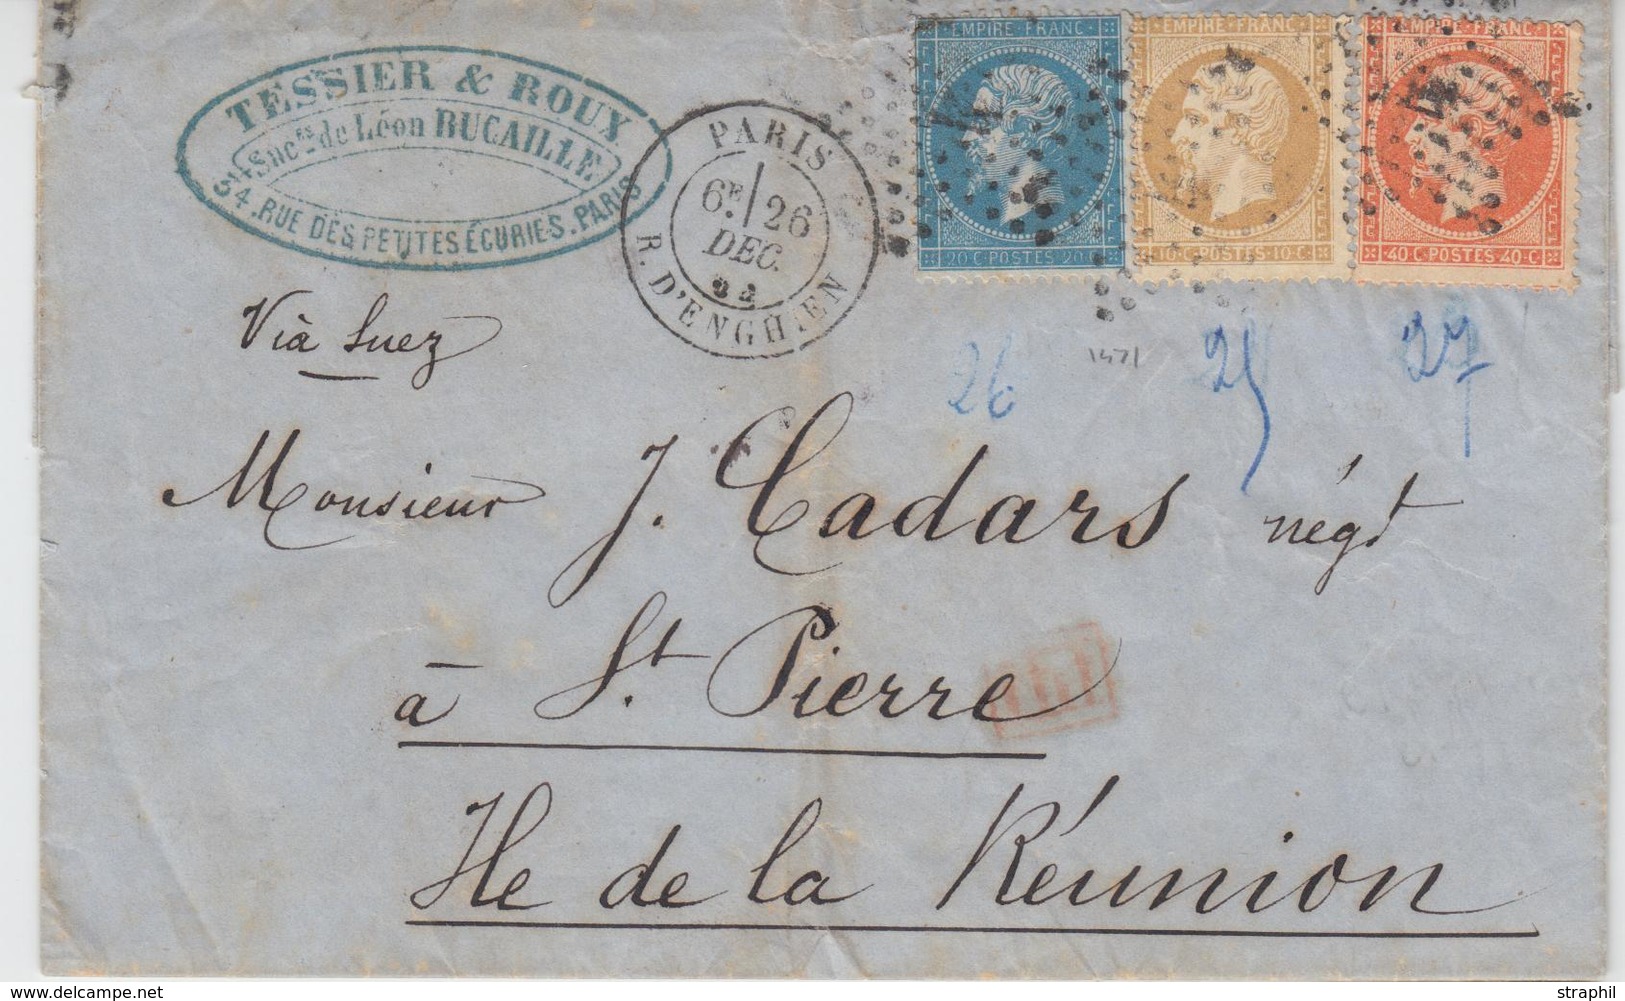 TESSIER & ROUX
Sucrs de Léon BUCAILLE
34. RUE DES PETITES ÉCURIES. PARIS
PARIS
6E 26
DEC.
R. D'ENGHIEN
EMPIRE FRANC
20 C POSTES 20 C
EMPIRE FRANC
10 C POSTES 10 C
EMPIRE FRANC
40 C POSTES 40 C
Vià Suez
26 1471 21 27
Monsieur J. Cadars négt
à St. Pierre
Ile de la Réunion
https://www.delcampe.net
straphil